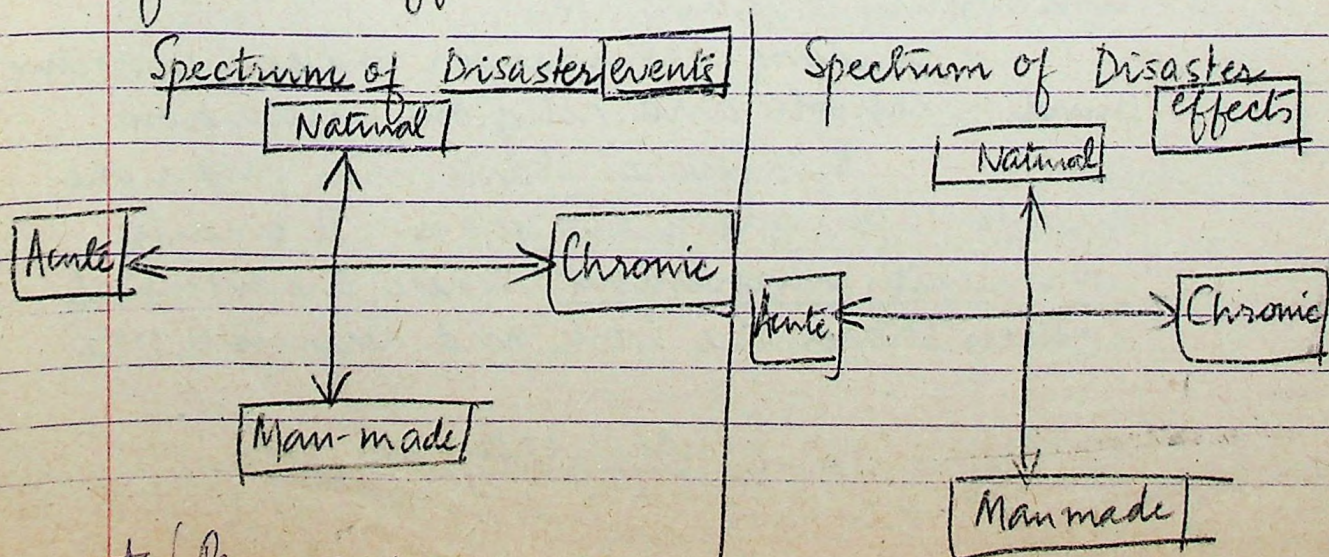 Spectrum of Disaster events
Natural
Acute
Chronic
Man-made
Spectrum of Disaster
effects
Natural
Acute
Chronic
Manmade